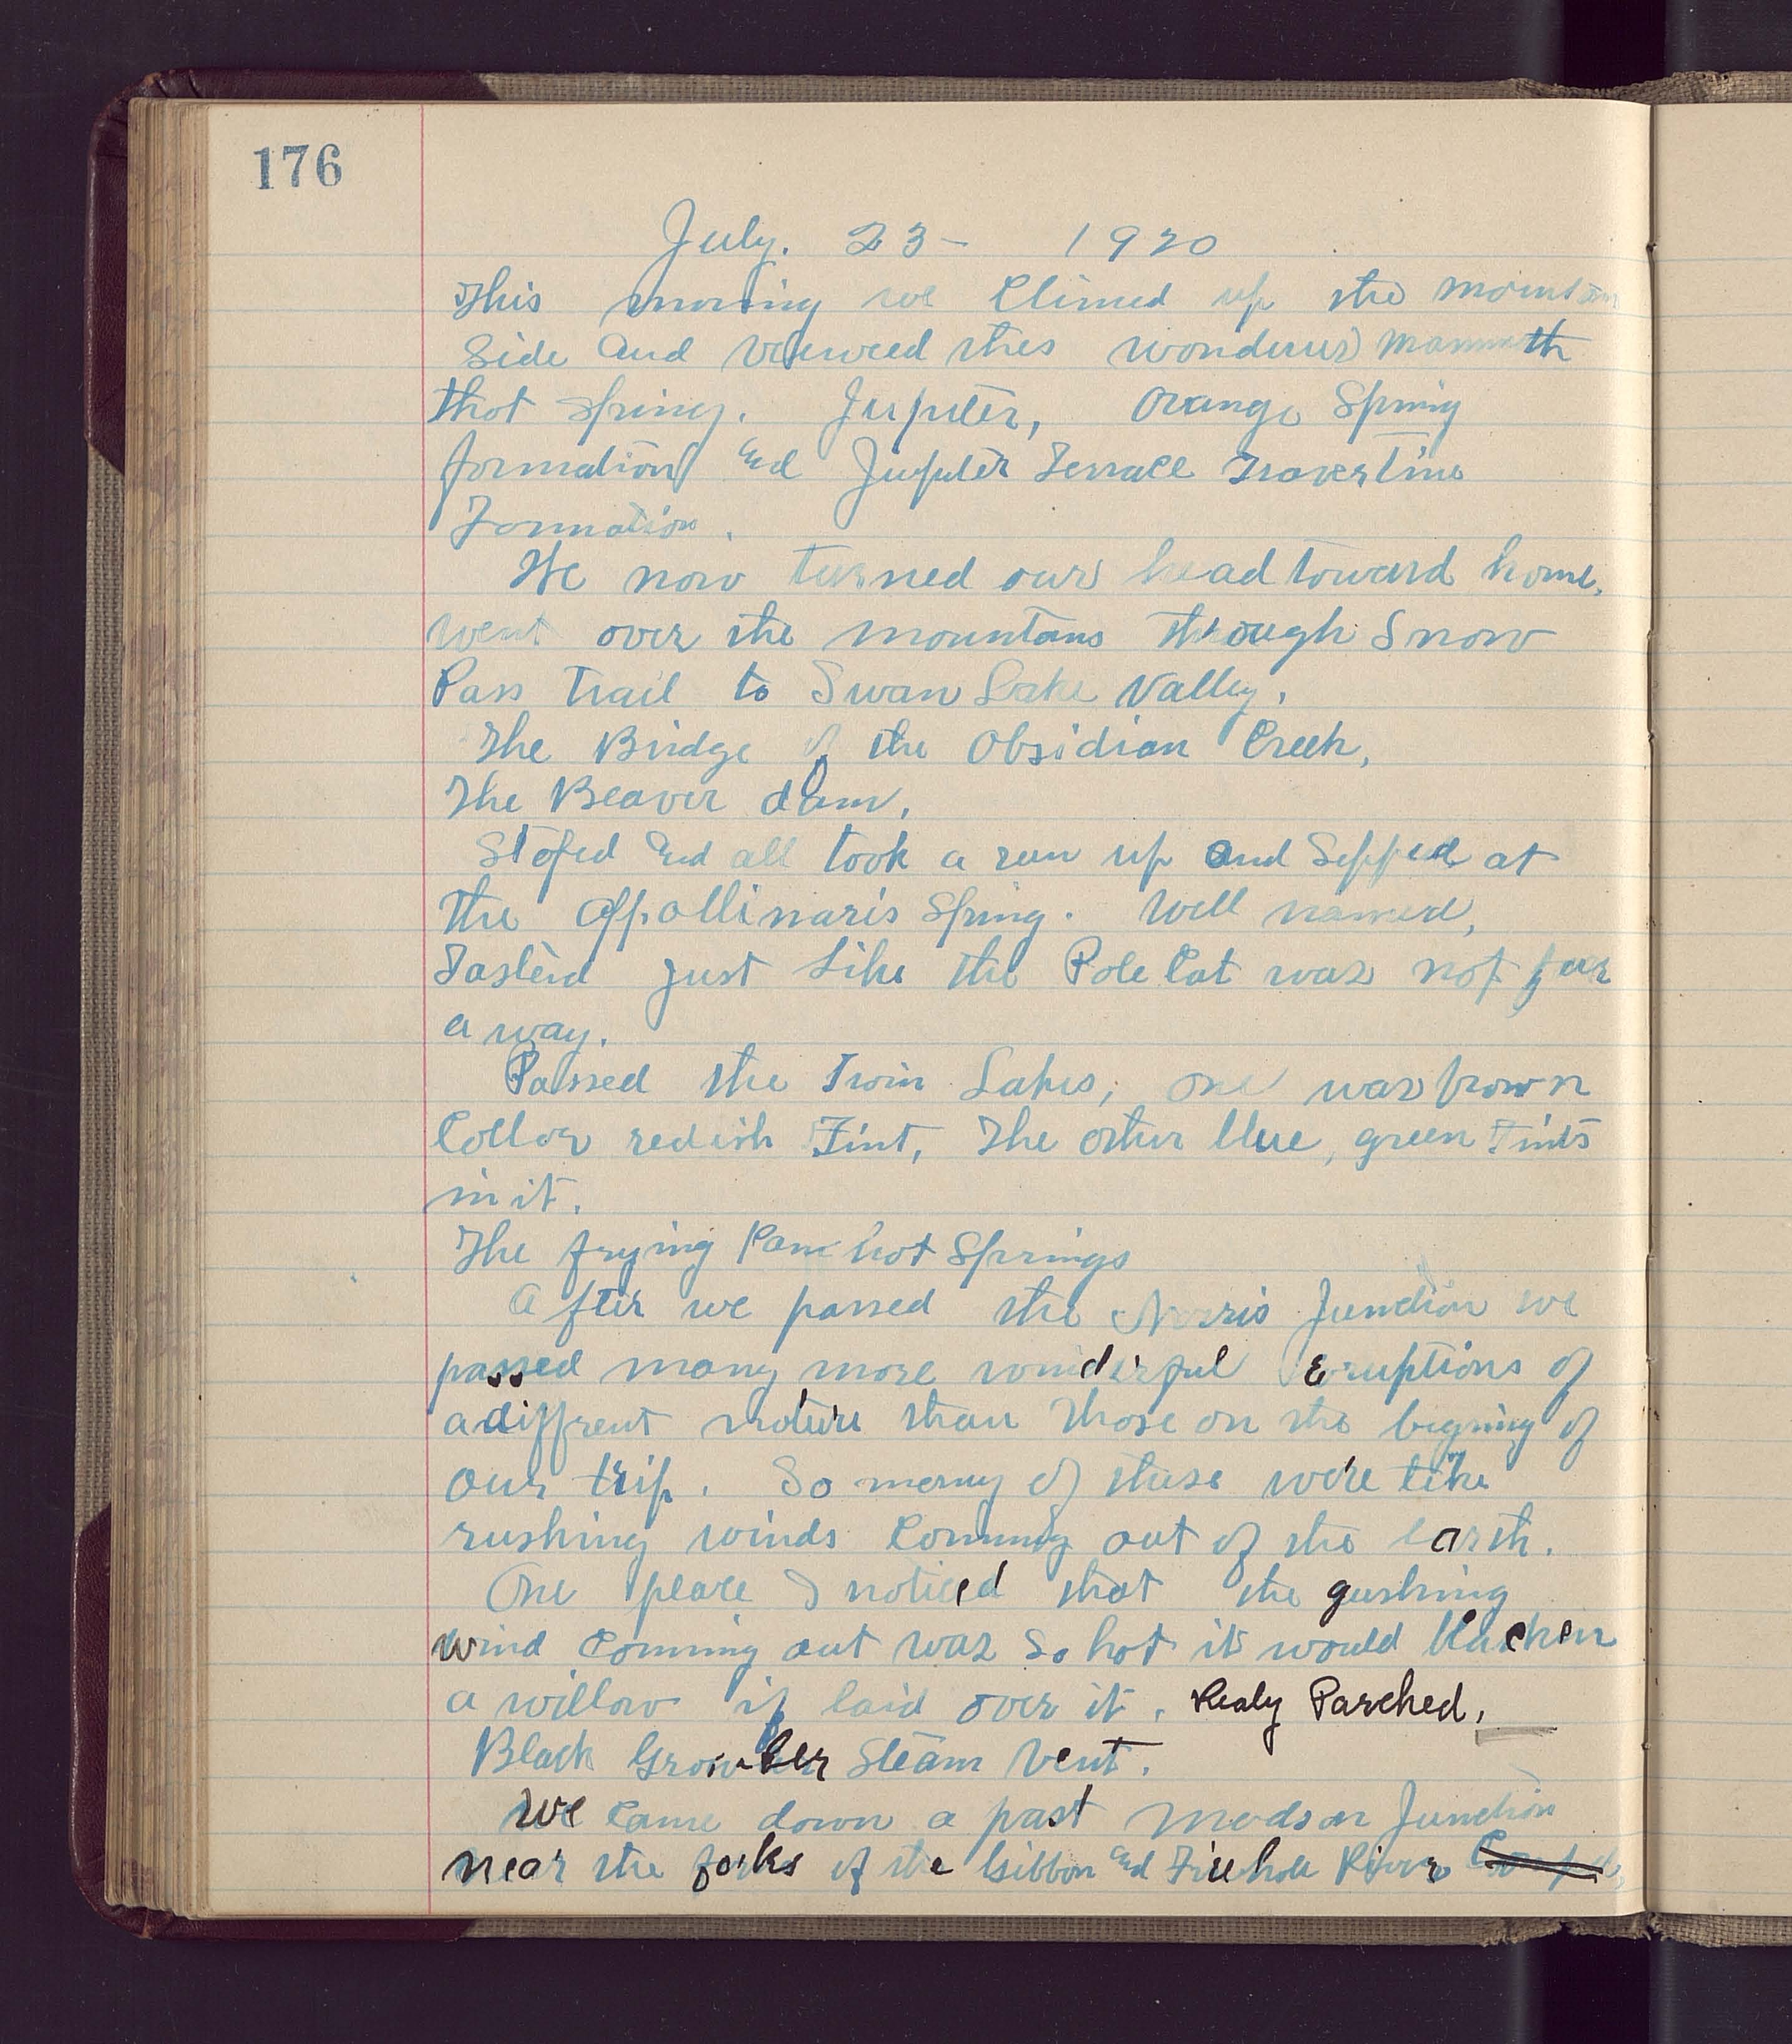 176
July. 23- 1920
This morning we Climed up the mountain
Side and veiwed thes wonderus Mammoth
Hot Spring. Jupiter, Orange Spring
formation and Jupiter Terrace Travertine
Formation.
We now turned our head toward home,
went over the mountans through Snow
Pass trail to Swan Lake Valley.
The Bridge of the Obsidian Creek,
The Beaver dam,
Stoped and all took a run up and Sepped at
the Appollinaris Spring. Well named,
Tasted just Like the Pole Cat was not far
a way.
Passed the Twin Lakes, one was brown
Collor redish Tint, The other blue, green Tints
in it.
The frying Pan hot Springs
After we passed the Norris Junction we
passed many more wonderful eruptions of
a diffrent nature than those on the bigning of
our trip. So many of these were like
rushing winds Comming out of the earth.
One place I noticed that the gushing
wind Comming out was So hot it would blacken
a willow if laid over it. Realy Parched.
Black Growler Steam Vent.
We Came down a past Madson Junction
near the forks of the Gibbon and Firehole River